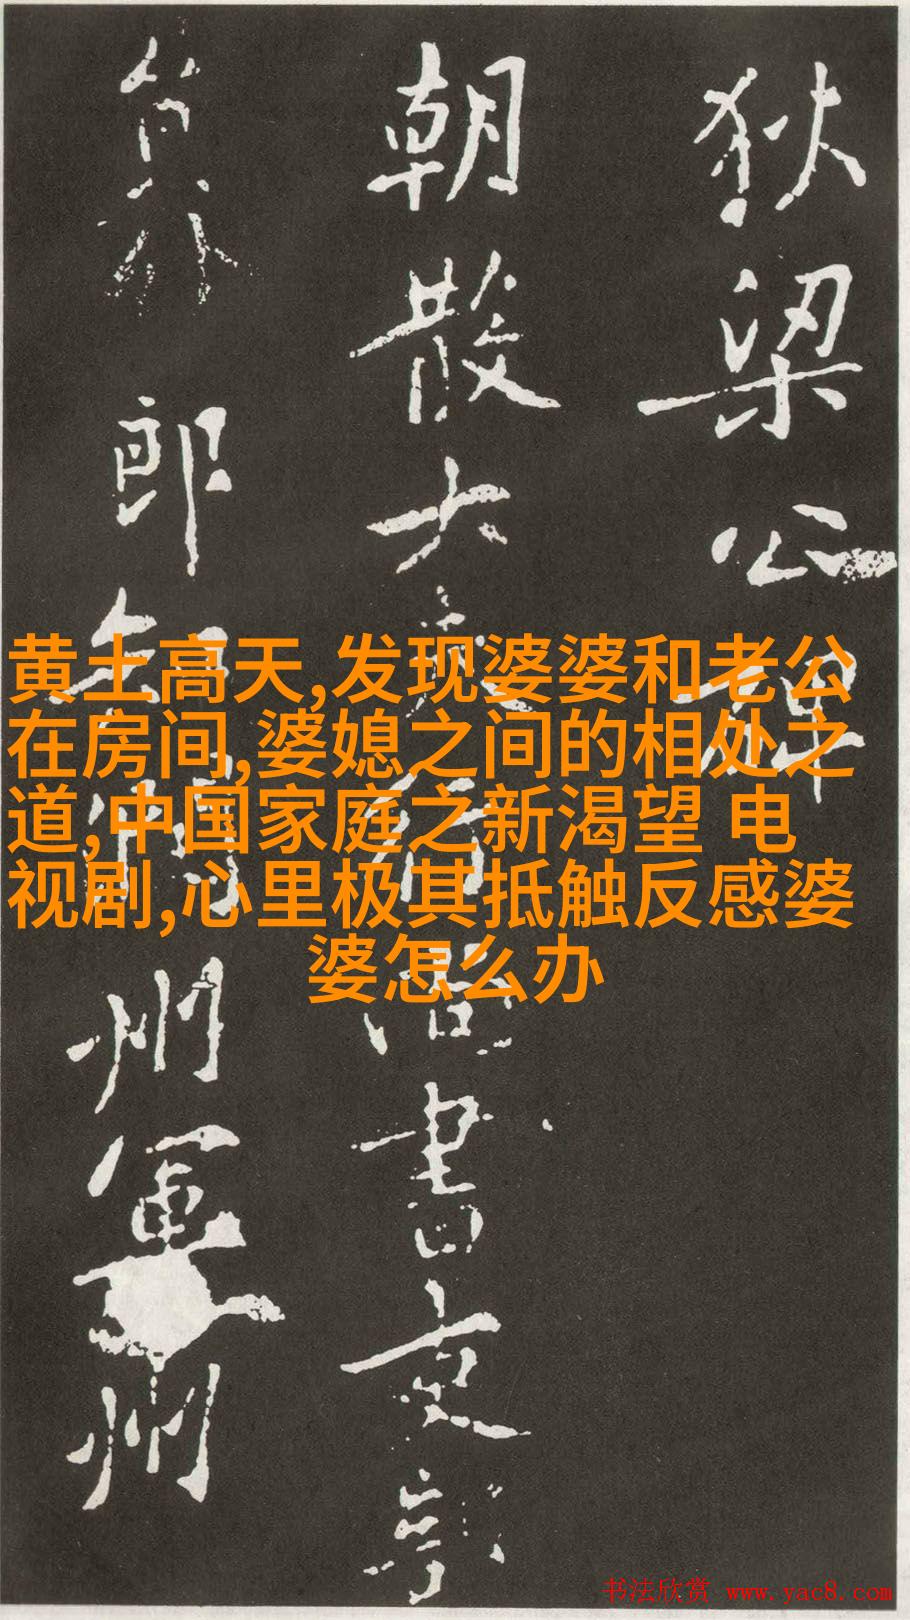 狄梁公碑
朝散大夫行尚書吏部
員外郎知潤州軍州
黄土高天,发现婆婆和老公
在房间,婆媳之间的相处之
道,中国家庭之新渴望 电
视剧,心里极其抵触反感婆
婆怎么办
书法欣赏 www.yac8.com